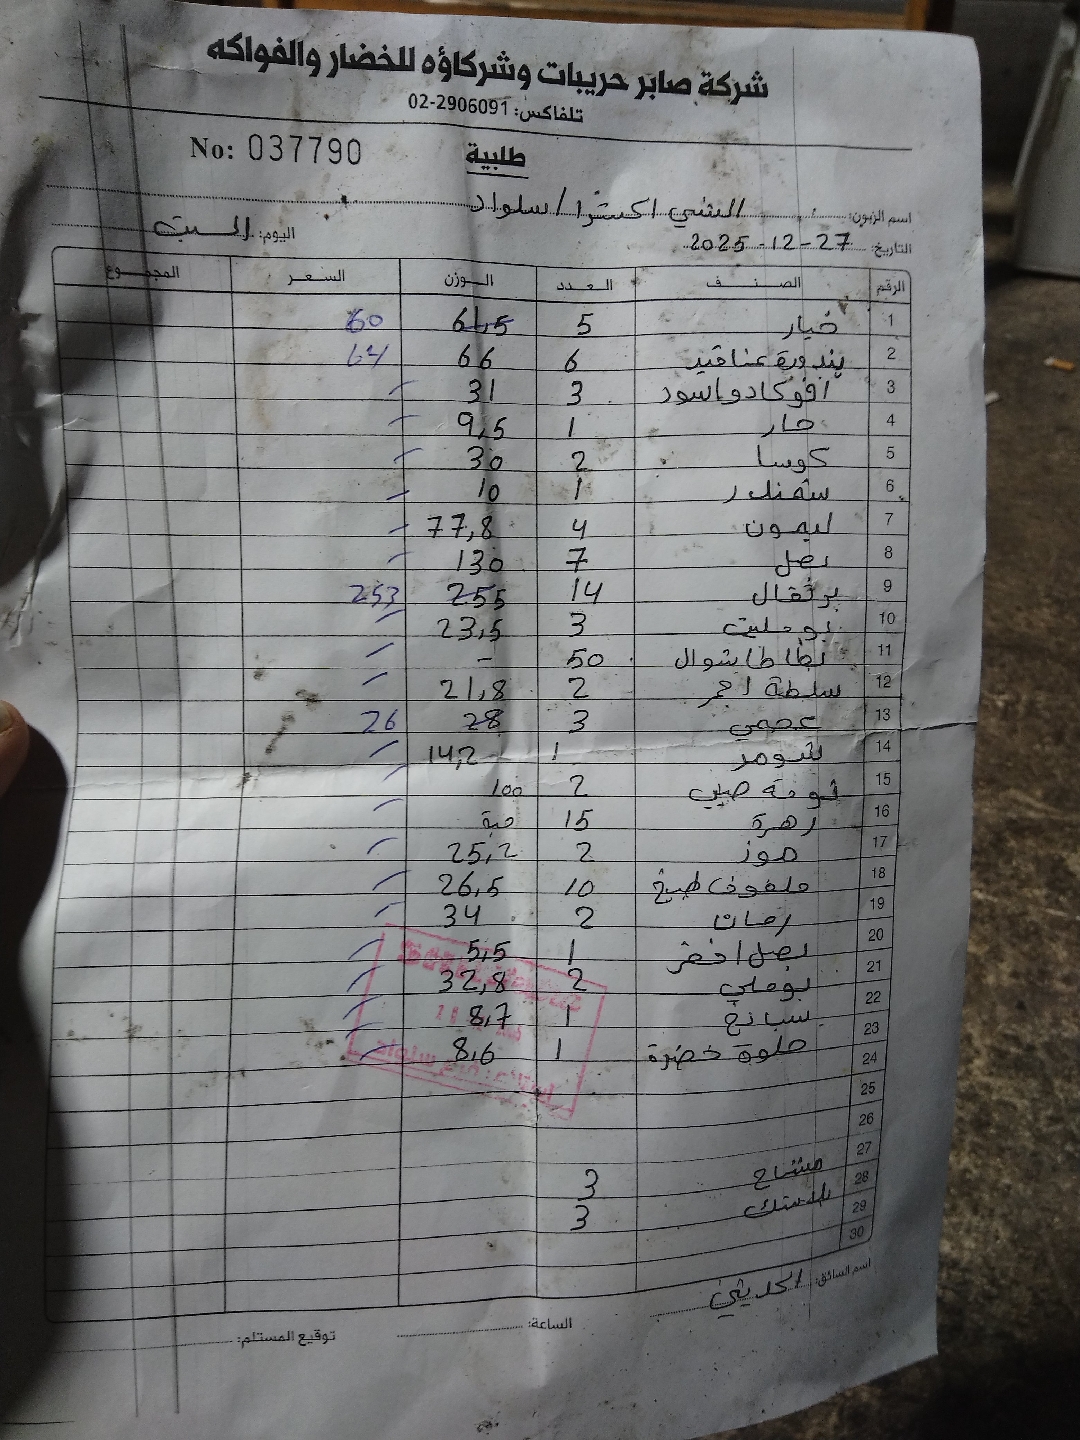 شركة صابر حريبات وشركاؤه للخضار والفواكه
تلفاكس: 02-2906091
طلبية
No: 037790
اسم الزبون: الشني اكسترا / سلواد
التاريخ: 27-12-2025
اليوم: السبت
الرقم الصنف العدد الوزن السعر المجموع
1 خيار 5 61,5 60
2 بندورة عناقيد 6 66 64
3 افوكادو اسود 3 31
4 حار 1 9,5
5 كوسا 2 30
6 شمندر 1 10
7 ليمون 4 77,8
8 بصل 7 130
9 برتقال 14 255 253
10 بومليت 3 23,5
11 بطاطا شوال 50 -
12 سلطة احمر 2 21,8
13 عجمي 3 28 26
14 شومر 1 14,2
15 ثومة صيني 2 100
16 زهرة 15 حبة
17 موز 2 25,2
18 ملفوف طبيخ 10 26,5
19 رمان 2 34
20 بصل اخضر 1 5,5
21 بوملي 2 32,8
22 سبانخ 1 8,7
23 حلوة خضرة 1 8,6
24
25
26
27 مشتاح 3
28 بلاستك 3
29
30
اسم السائق: الحديثي
الساعة:
توقيع المستلم: